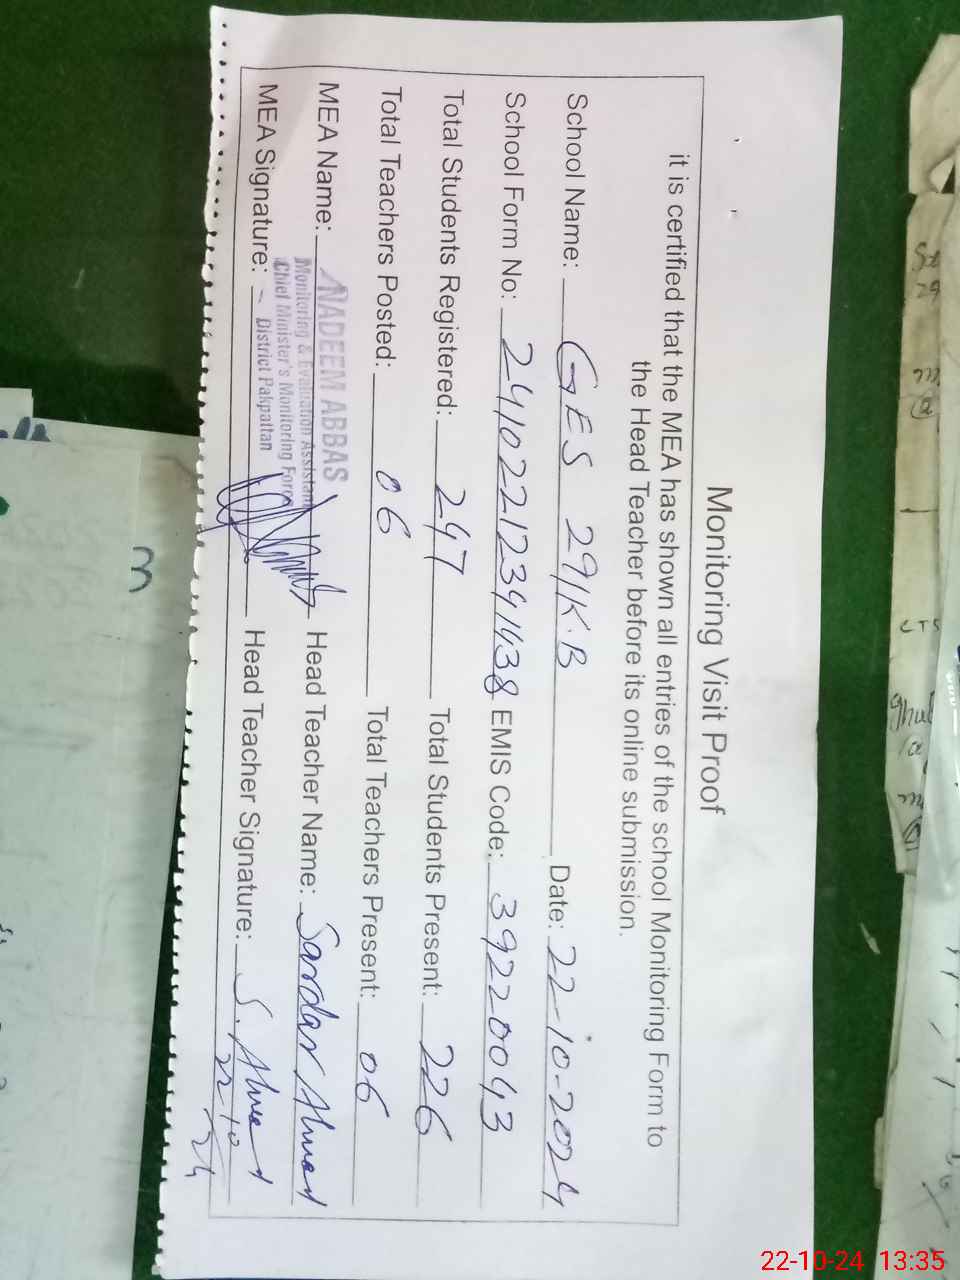 Monitoring Visit Proof
it is certified that the MEA has shown all entries of the school Monitoring Form to
the Head Teacher before its online submission.
School Name: GES 29/K.B Date: 22-10-2024
School Form No: 2410221239143 8 EMIS Code: 39220043
Total Students Registered: 247 Total Students Present: 226
Total Teachers Posted: 06 Total Teachers Present: 06
MEA Name: NADEEM ABBAS Head Teacher Name: Sardar Ahmad
Monitoring & Evaluation Assistant
Chief Minister's Monitoring Force
District Pakpattan
MEA Signature: Head Teacher Signature: S. Ahmad
22/10/24
22-10-24 13:35